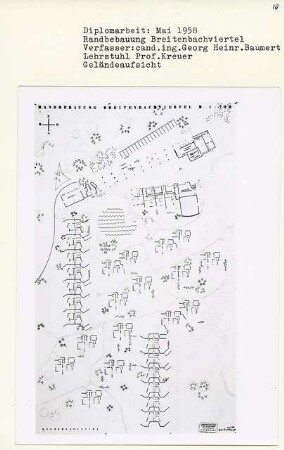 10
Diplomarbeit: Mai 1958
Randbebauung Breitenbachviertel
Verfasser:cand.ing.Georg Heinr.Baumert
Lehrstuhl Prof.Kreuer
Geländeaufsicht
RANDBEBAUUNG BREITENBACHVIERTEL M 1:200